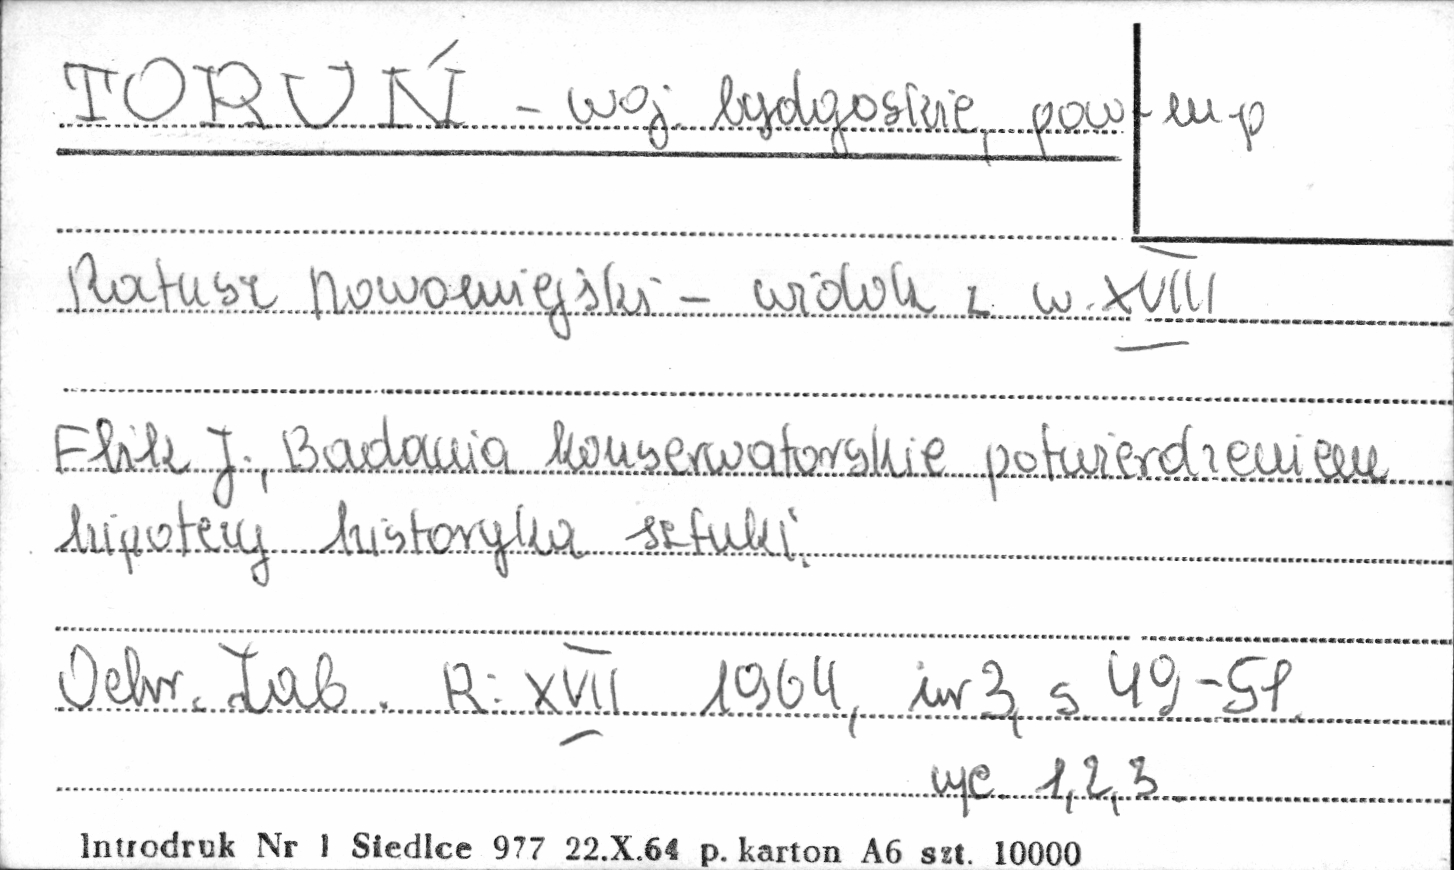 TORUŃ - woj. bydgoskie, pow. m-p
Ratusz Nowomiejski - widok z w. XVIII
Flik J., Badania konserwatorskie potwierdzeniem
hipotezy historyka sztuki.
Ochr. Zab. R: XVII 1964, nr 3, s. 49-51.
ryc. 1,2,3.
Introdruk Nr 1 Siedlce 977 22.X.64 p. karton A6 szt. 10000